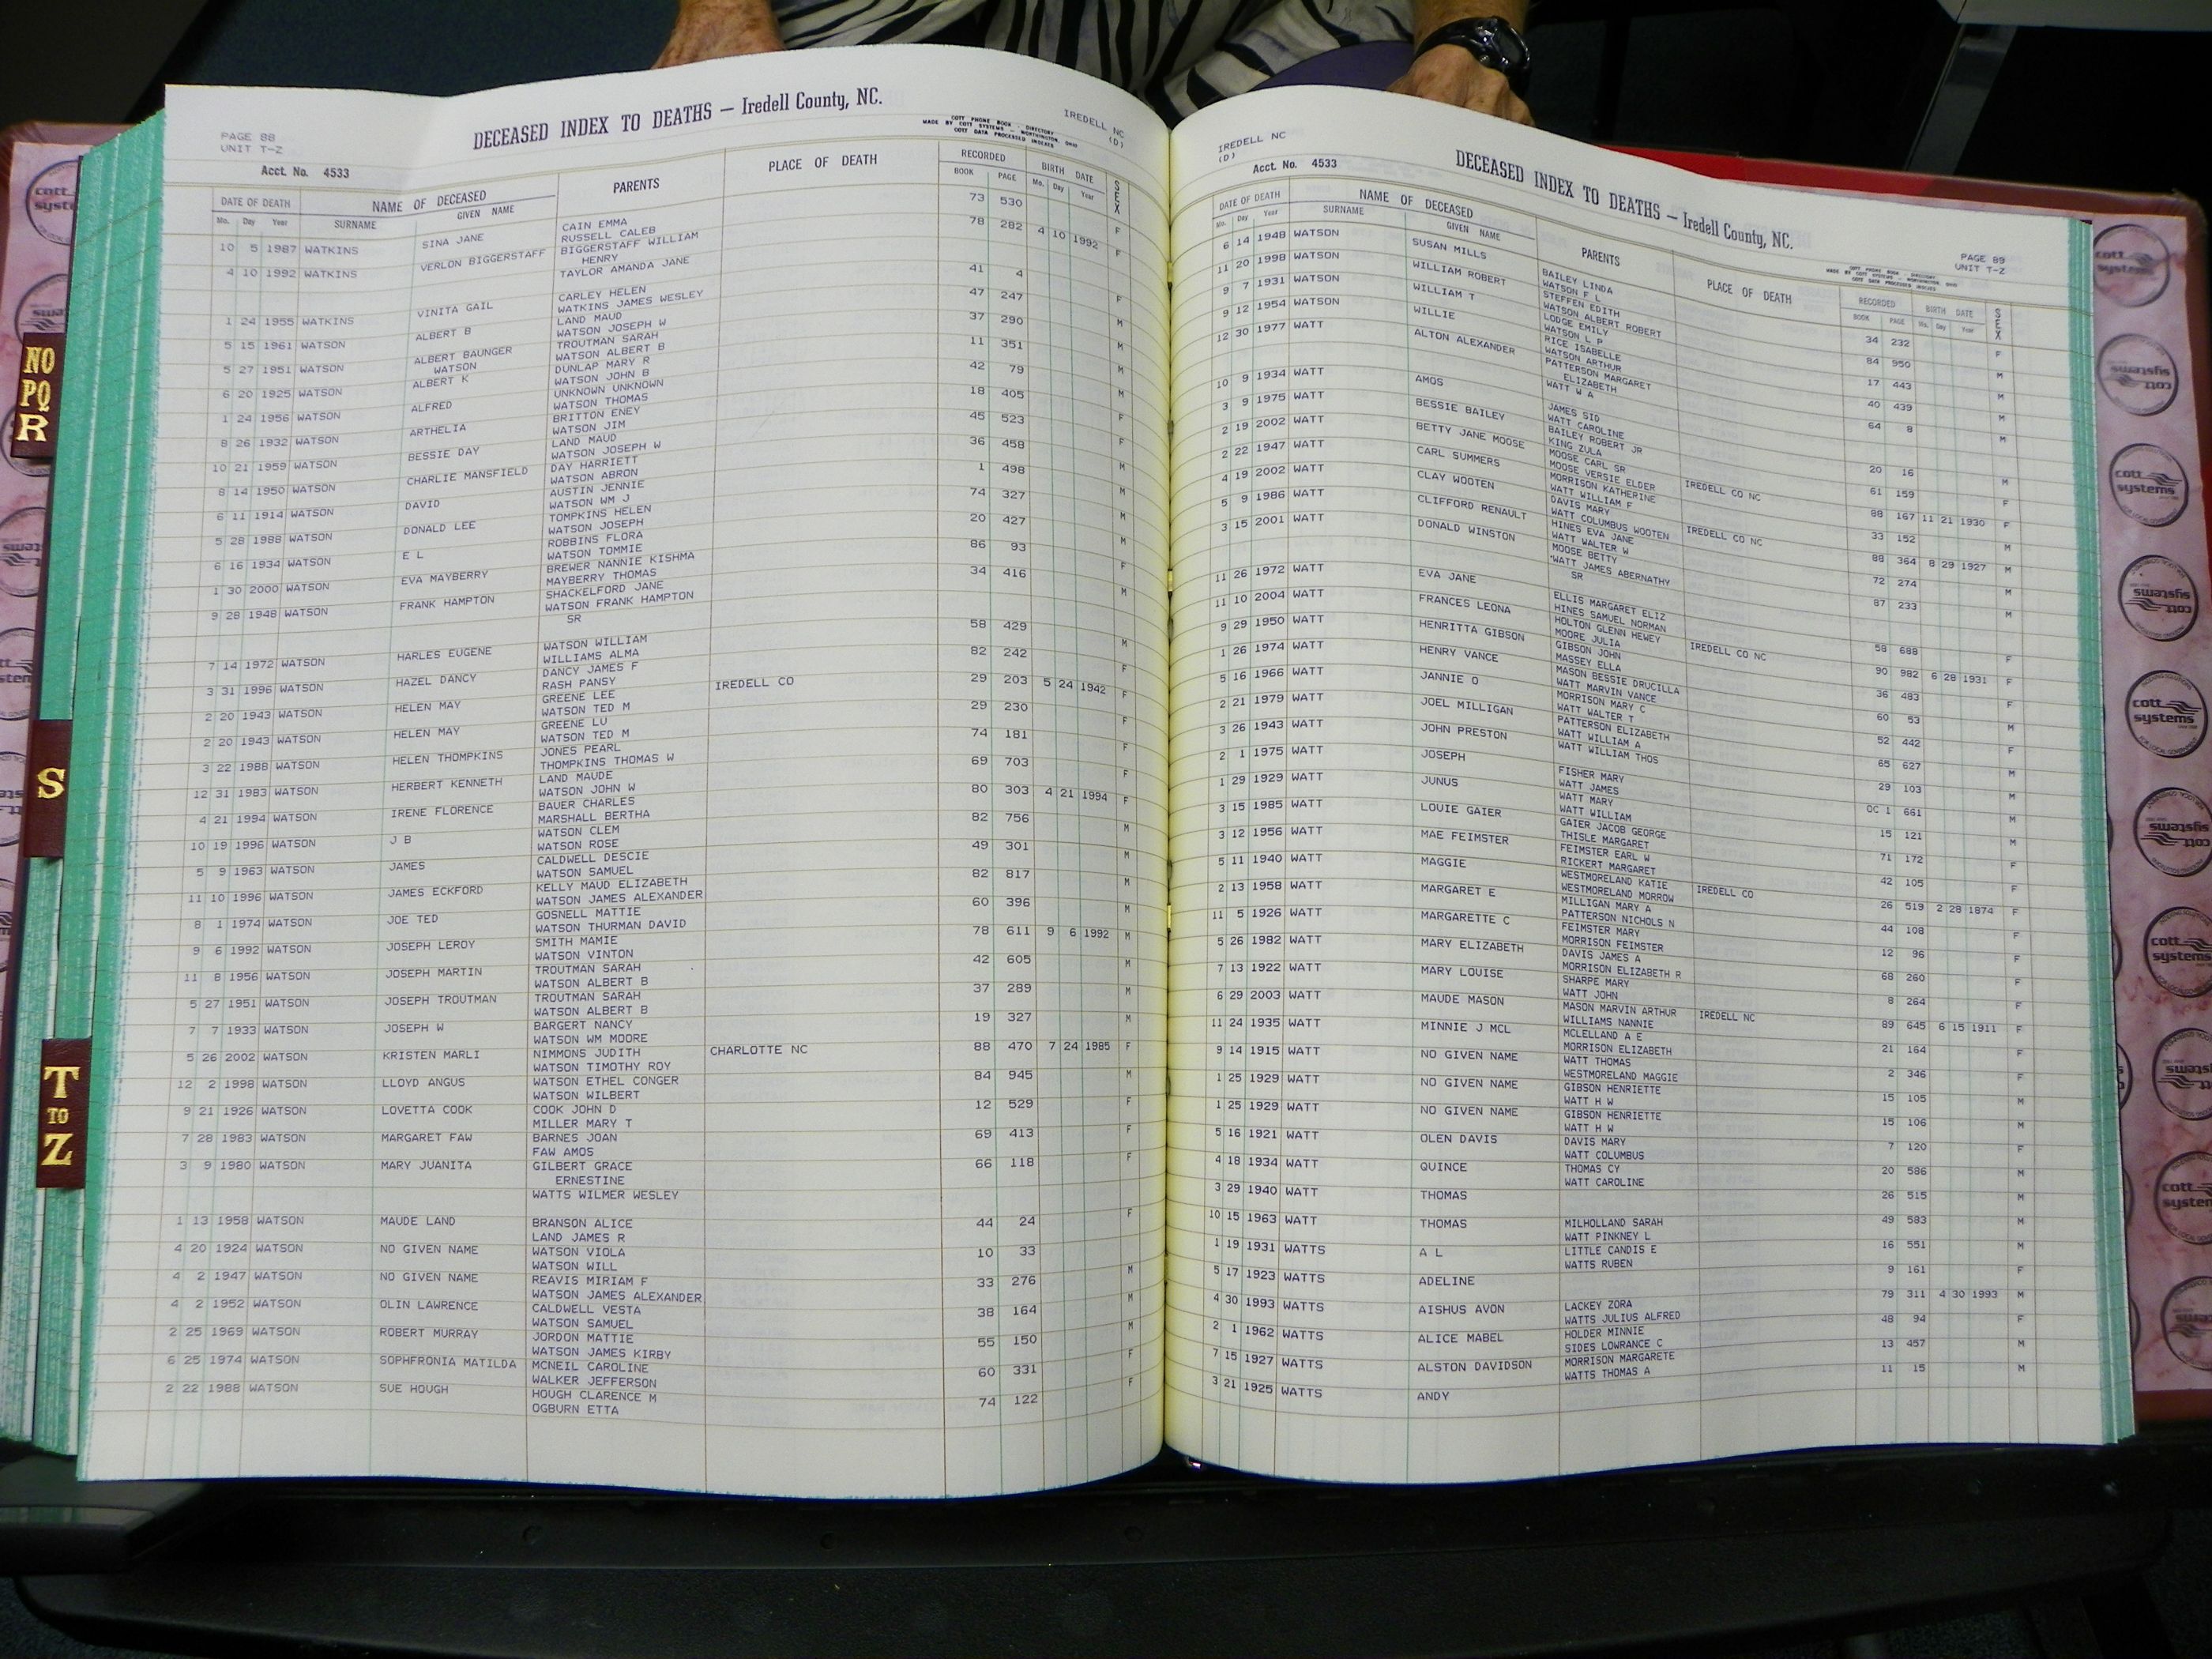 PAGE 88
UNIT T-Z
DECEASED INDEX TO DEATHS — Iredell County, NC.
COTT PHONE BOOK - DIRECTORY
MADE BY COTT SYSTEMS - WORTHINGTON, OHIO
COTT DATA PROCESSED INDEXES
IREDELL NC
(D)
Acct. No. 4533
DATE OF DEATH NAME OF DECEASED PARENTS PLACE OF DEATH RECORDED BIRTH DATE SEX
Mo. Day Year SURNAME GIVEN NAME BOOK PAGE Mo. Day Year
10 5 1987 WATKINS SINA JANE CAIN EMMA 73 530 F
RUSSELL CALEB
4 10 1992 WATKINS VERLON BIGGERSTAFF BIGGERSTAFF WILLIAM 78 282 4 10 1992 F
HENRY
TAYLOR AMANDA JANE
1 24 1955 WATKINS VINITA GAIL CARLEY HELEN 41 4 F
WATKINS JAMES WESLEY
5 15 1961 WATSON ALBERT B LAND MAUD 47 247 M
WATSON JOSEPH W
5 27 1951 WATSON ALBERT BAUNGER TROUTMAN SARAH 37 290 M
WATSON WATSON ALBERT B
6 20 1925 WATSON ALBERT K DUNLAP MARY R 11 351 M
WATSON JOHN B
1 24 1956 WATSON ALFRED UNKNOWN UNKNOWN 42 79
WATSON THOMAS
8 26 1932 WATSON ARTHELIA BRITTON ENEY 18 405 F
WATSON JIM
10 21 1959 WATSON BESSIE DAY LAND MAUD 45 523 F
WATSON JOSEPH W
8 14 1950 WATSON CHARLIE MANSFIELD DAY HARRIETT 36 458 M
WATSON ABRON
6 11 1914 WATSON DAVID AUSTIN JENNIE 1 498 M
WATSON WM J
5 28 1988 WATSON DONALD LEE TOMPKINS HELEN 74 327 M
WATSON JOSEPH
6 16 1934 WATSON E L ROBBINS FLORA 20 427 M
WATSON TOMMIE
1 30 2000 WATSON EVA MAYBERRY BREWER NANNIE KISHMA 86 93 F
MAYBERRY THOMAS
9 28 1948 WATSON FRANK HAMPTON SHACKELFORD JANE 34 416 M
WATSON FRANK HAMPTON
SR
7 14 1972 WATSON HARLES EUGENE WATSON WILLIAM 58 429 M
WILLIAMS ALMA
3 31 1996 WATSON HAZEL DANCY DANCY JAMES F 82 242 F
RASH PANSY
2 20 1943 WATSON HELEN MAY GREENE LEE IREDELL CO 29 203 5 24 1942 F
WATSON TED M
2 20 1943 WATSON HELEN MAY GREENE LU 29 230 F
WATSON TED M
3 22 1988 WATSON HELEN THOMPKINS JONES PEARL 74 181 F
THOMPKINS THOMAS W
12 31 1983 WATSON HERBERT KENNETH LAND MAUDE 69 703 F
WATSON JOHN W
4 21 1994 WATSON IRENE FLORENCE BAUER CHARLES 80 303 4 21 1994 F
MARSHALL BERTHA
10 19 1996 WATSON J B WATSON CLEM 82 756 M
WATSON ROSE
5 9 1963 WATSON JAMES CALDWELL DESCIE 49 301 M
WATSON SAMUEL
11 10 1996 WATSON JAMES ECKFORD KELLY MAUD ELIZABETH 82 817 M
WATSON JAMES ALEXANDER
8 1 1974 WATSON JOE TED GOSNELL MATTIE 60 396 M
WATSON THURMAN DAVID
9 6 1992 WATSON JOSEPH LEROY SMITH MAMIE 78 611 9 6 1992 M
WATSON VINTON
11 8 1956 WATSON JOSEPH MARTIN TROUTMAN SARAH 42 605 M
WATSON ALBERT B
5 27 1951 WATSON JOSEPH TROUTMAN TROUTMAN SARAH 37 289 M
WATSON ALBERT B
7 7 1933 WATSON JOSEPH W BARGERT NANCY 19 327 M
WATSON WM MOORE
5 26 2002 WATSON KRISTEN MARLI NIMMONS JUDITH CHARLOTTE NC 88 470 7 24 1985 F
WATSON TIMOTHY ROY
12 2 1998 WATSON LLOYD ANGUS WATSON ETHEL CONGER 84 945 M
WATSON WILBERT
9 21 1926 WATSON LOVETTA COOK COOK JOHN D 12 529 F
MILLER MARY T
7 28 1983 WATSON MARGARET FAW BARNES JOAN 69 413 F
FAW AMOS
3 9 1980 WATSON MARY JUANITA GILBERT GRACE 66 118 F
ERNESTINE
WATTS WILMER WESLEY
1 13 1958 WATSON MAUDE LAND BRANSON ALICE 44 24 F
LAND JAMES R
4 20 1924 WATSON NO GIVEN NAME WATSON VIOLA 10 33
WATSON WILL
4 2 1947 WATSON NO GIVEN NAME REAVIS MIRIAM F 33 276 M
WATSON JAMES ALEXANDER
4 2 1952 WATSON OLIN LAWRENCE CALDWELL VESTA 38 164 M
WATSON SAMUEL
2 25 1969 WATSON ROBERT MURRAY JORDON MATTIE 55 150 M
WATSON JAMES KIRBY
6 25 1974 WATSON SOPHFRONIA MATILDA MCNEIL CAROLINE 60 331 F
WALKER JEFFERSON
2 22 1988 WATSON SUE HOUGH HOUGH CLARENCE M 74 122 F
OGBURN ETTA
IREDELL NC
(D)
DECEASED INDEX TO DEATHS — Iredell County, NC.
PAGE 89
UNIT T-Z
COTT PHONE BOOK - DIRECTORY
MADE BY COTT SYSTEMS - WORTHINGTON, OHIO
COTT DATA PROCESSED INDEXES
Acct. No. 4533
DATE OF DEATH NAME OF DECEASED PARENTS PLACE OF DEATH RECORDED BIRTH DATE SEX
Mo. Day Year SURNAME GIVEN NAME BOOK PAGE Mo. Day Year
6 14 1948 WATSON SUSAN MILLS BAILEY LINDA 34 232 F
WATSON F L
11 20 1998 WATSON WILLIAM ROBERT STEFFEN EDITH 84 950 M
WATSON ALBERT ROBERT
9 7 1931 WATSON WILLIAM T LODGE EMILY 17 443 M
WATSON L P
9 12 1954 WATSON WILLIE RICE ISABELLE 40 439 M
WATSON ARTHUR
12 30 1977 WATT ALTON ALEXANDER PATTERSON MARGARET 64 8 M
ELIZABETH
WATT W A
10 9 1934 WATT AMOS JAMES SID 20 16 M
WATT CAROLINE
3 9 1975 WATT BESSIE BAILEY BAILEY ROBERT JR 61 159 F
KING ZULA
2 19 2002 WATT BETTY JANE MOOSE MOOSE CARL SR IREDELL CO NC 88 167 11 21 1930 F
MOOSE VERSIE ELDER
2 22 1947 WATT CARL SUMMERS MORRISON KATHERINE 33 152 M
WATT WILLIAM F
4 19 2002 WATT CLAY WOOTEN DAVIS MARY IREDELL CO NC 88 364 8 29 1927 M
WATT COLUMBUS WOOTEN
5 9 1986 WATT CLIFFORD RENAULT HINES EVA JANE 72 274 M
WATT WALTER W
3 15 2001 WATT DONALD WINSTON MOOSE BETTY 87 233 M
WATT JAMES ABERNATHY
SR
11 26 1972 WATT EVA JANE ELLIS MARGARET ELIZ 58 688 F
HINES SAMUEL NORMAN
11 10 2004 WATT FRANCES LEONA HOLTON GLENN HEWEY IREDELL CO NC 90 982 6 28 1931 F
MOORE JULIA
9 29 1950 WATT HENRITTA GIBSON GIBSON JOHN 36 483 F
MASSEY ELLA
1 26 1974 WATT HENRY VANCE MASON BESSIE DRUCILLA 60 53 M
WATT MARVIN VANCE
5 16 1966 WATT JANNIE O MORRISON MARY C 52 442 F
WATT WALTER T
2 21 1979 WATT JOEL MILLIGAN PATTERSON ELIZABETH 65 627 M
WATT WILLIAM A
3 26 1943 WATT JOHN PRESTON WATT WILLIAM THOS 29 103 M
2 1 1975 WATT JOSEPH FISHER MARY OC 1 661 M
WATT JAMES
1 29 1929 WATT JUNUS WATT MARY 15 121 M
WATT WILLIAM
3 15 1985 WATT LOUIE GAIER GAIER JACOB GEORGE 71 172 F
THISLE MARGARET
3 12 1956 WATT MAE FEIMSTER FEIMSTER EARL W 42 105 F
RICKERT MARGARET
5 11 1940 WATT MAGGIE WESTMORELAND KATIE IREDELL CO 26 519 2 28 1874 F
WESTMORELAND MORROW
2 13 1958 WATT MARGARET E MILLIGAN MARY A 44 108 F
PATTERSON NICHOLS N
11 5 1926 WATT MARGARETTE C FEIMSTER MARY 12 96 F
MORRISON FEIMSTER
5 26 1982 WATT MARY ELIZABETH DAVIS JAMES A 68 260 F
MORRISON ELIZABETH R
7 13 1922 WATT MARY LOUISE SHARPE MARY 8 264 F
WATT JOHN
6 29 2003 WATT MAUDE MASON MASON MARVIN ARTHUR IREDELL NC 89 645 6 15 1911 F
WILLIAMS NANNIE
11 24 1935 WATT MINNIE J MCL MCLELLAND A E 21 164 F
MORRISON ELIZABETH
9 14 1915 WATT NO GIVEN NAME WATT THOMAS 2 346 F
WESTMORELAND MAGGIE
1 25 1929 WATT NO GIVEN NAME GIBSON HENRIETTE 15 105 M
WATT H W
1 25 1929 WATT NO GIVEN NAME GIBSON HENRIETTE 15 106 M
WATT H W
5 16 1921 WATT OLEN DAVIS DAVIS MARY 7 120 F
WATT COLUMBUS
4 18 1934 WATT QUINCE THOMAS CY 20 586 M
WATT CAROLINE
3 29 1940 WATT THOMAS 26 515 M
10 15 1963 WATT THOMAS MILHOLLAND SARAH 49 583 M
WATT PINKNEY L
1 19 1931 WATTS A L LITTLE CANDIS E 16 551 M
WATTS RUBEN
5 17 1923 WATTS ADELINE 9 161 F
4 30 1993 WATTS AISHUS AVON LACKEY ZORA 79 311 4 30 1993 M
WATTS JULIUS ALFRED
2 1 1962 WATTS ALICE MABEL HOLDER MINNIE 48 94 F
SIDES LOWRANCE C
7 15 1927 WATTS ALSTON DAVIDSON MORRISON MARGARETE 13 457 M
WATTS THOMAS A
3 21 1925 WATTS ANDY 11 15 M
NO
PQ
R
S
T
TO
Z
cott
systems
cott
systems
cott
systems
cott
systems